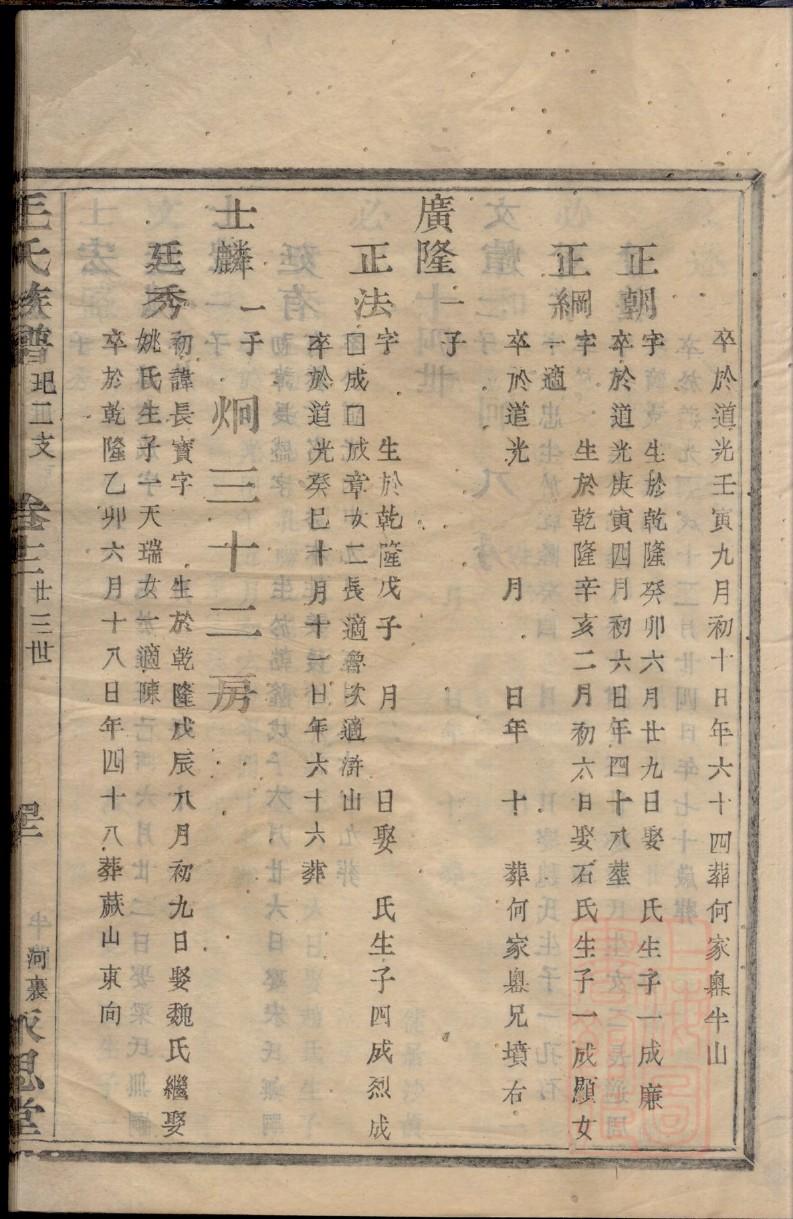 卒於道光壬寅九月初十日年六十四葬何家奧牛山
正朝字 生於乾隆癸卯六月廿九日娶 氏生子一成廉
卒於道光庚寅四月初六日年四十八葬
正綱字 生於乾隆辛亥二月初六日娶石氏生子一成顯女
一適
卒於道光 月 日年 十 葬何家奧兄墳右
廣隆一子
正法字 生於乾隆戊子 月 日娶 氏生子四成烈成
成 成章女二長適魯次適滸山
卒於道光癸巳十月十一日年六十六葬
炯三十二房
士麟一子
廷秀初諱長寶字 生於乾隆戊辰八月初九日娶魏氏繼娶
姚氏生子一天瑞女一適陳
卒於乾隆乙卯六月十八日年四十八葬蕨山東向
王氏族譜 五支 卷十二 廿三世 河襄 思堂